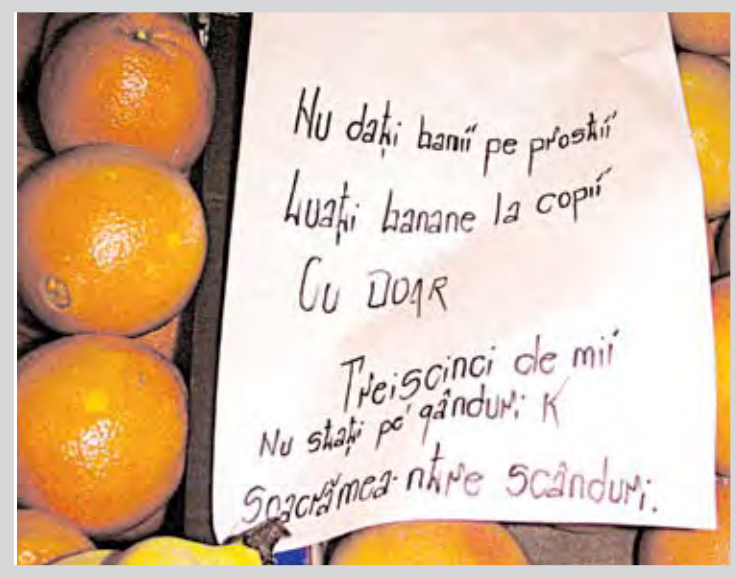 Nu dați banii pe prostii
Luați banane la copii
Cu DOAR
Treiscinci de mii
Nu stați pe gânduri K
Soacrămea-ntre scânduri.